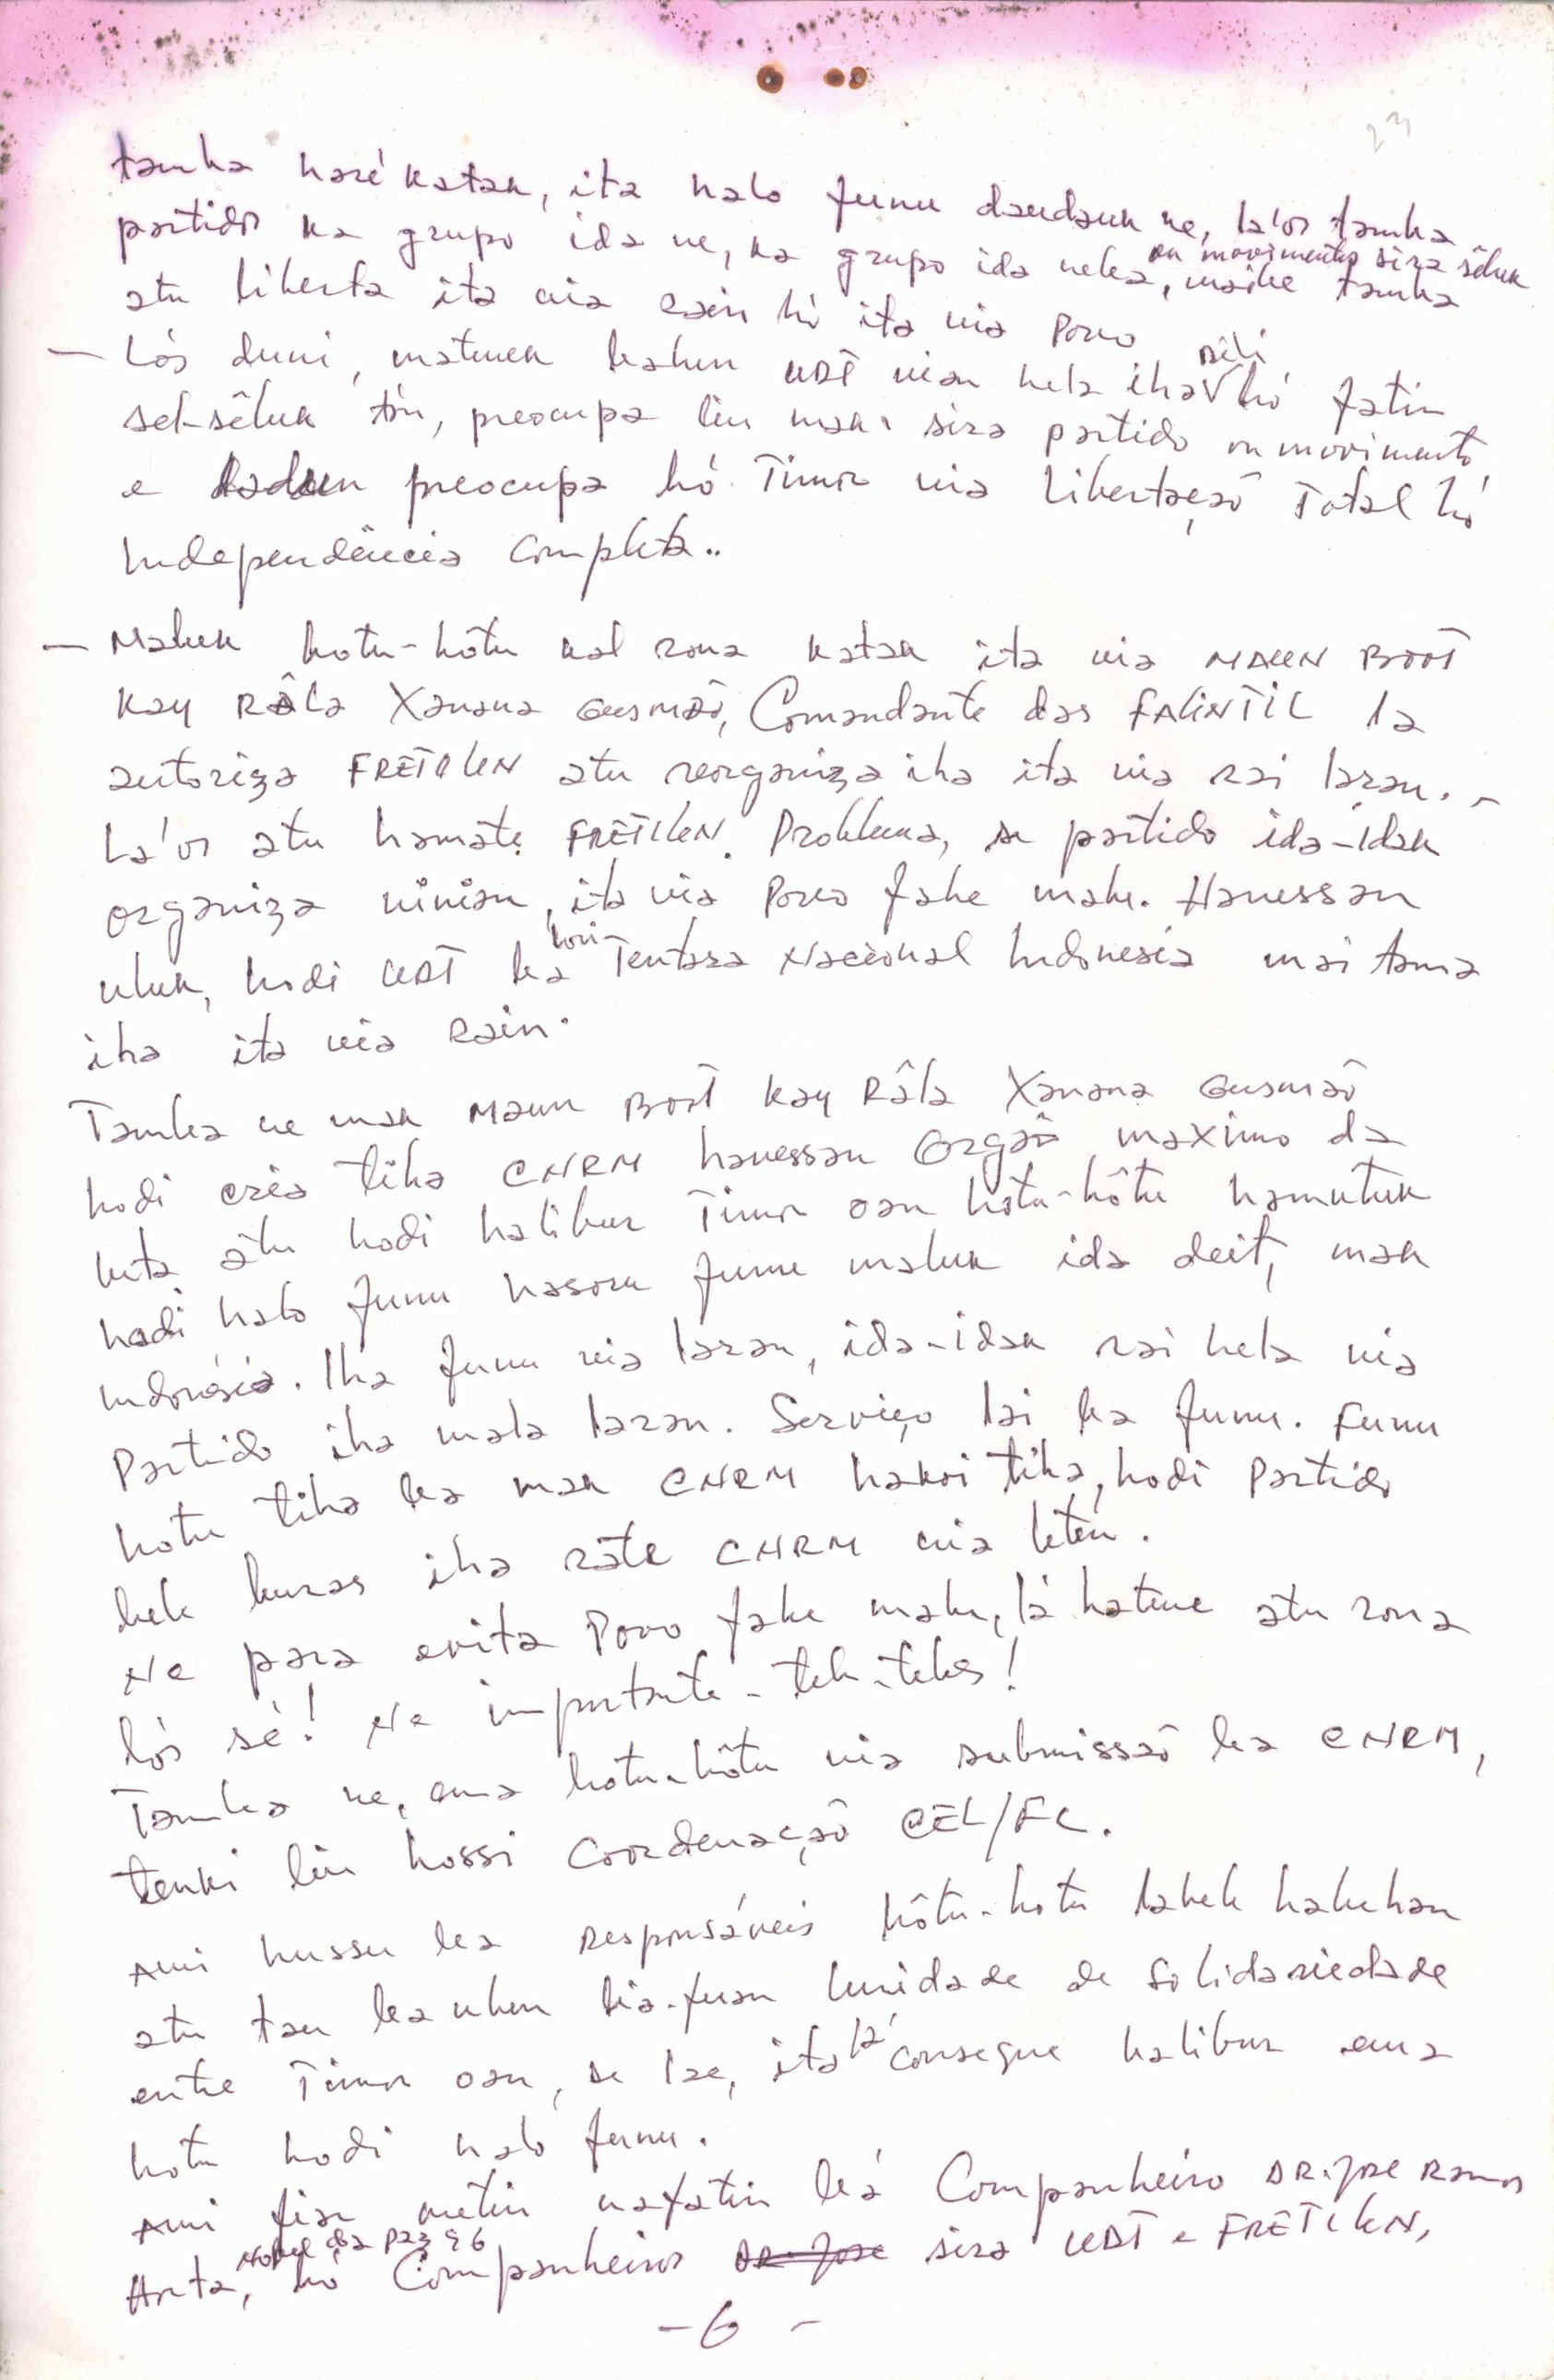 23
tamba haré katak, ita halo funu daudauk ne, la'os tamba
partido ka grupo ida ne, ka grupo ida neba, ou movimento sira sêluk maibe tamba
atu liberta ita nia rain hó ita nia Povo
— Lós duni, matenek balun UDT nian hela iha Dili hó fatin
sel-sêluk tán, preocupa liu mak sira partido ou movimento
e ladun preocupa hó Timor nia Libertação Total hó
Independência Completa..
— Maluk hotu-hôtu kal rona katak ita nia MAUN BOOT
Kay Râla Xanana Gusmão, Comandante das FALINTIL la
autoriza FRETILIN atu reorganiza iha ita nia rai laran. -
La'os atu hamate FRETILIN. Problema, se partido ida-idak
organiza ninian, ita nia Povo fahe malu. Hanessan
uluk, hodi UDT ba lori Tentara Nacional Indonesia mai tama
iha ita nia Rain.
Tamba ne mak Maun Boot Kay Râla Xanana Gusmão
hodi cria tiha CNRM hanessan Orgão maximo da
luta atu hodi halibur Timor oan hotu-hôtu hamutuk
hodi halo funu hasoru funu maluk ida deit, mak
Indonésia. Iha funu nia laran, ida-idak rai hela nia
Partido iha mala laran. Serviço lai ba funu. Funu
hotu tiha ba mak CNRM hakoi tiha, hodi Partido
bele buras iha rate CNRM nia leten.
Ne para evita Povo fahe malu, lá hatene atu rona
lós sé! Ne importante-teb-tebes!
Tamba ne, ema hotu-hôtu nia submissão ba CNRM,
tenki liu hossi Coordenação CEL/FL.
Ami hussu ba Responsáveis hôtu-hotu labele haluhan
atu tau ba ulun lia-fuan Unidade de Solidariedade
entre Timor oan, se lae, ita lá consegue halibur ema
hotu hodi halo funu.
Ami fiar metin nafatin bá Companheiro DR. José Ramos
Horta, Nobel da Paz 96 hó Companheiros DR. José sira UDT e FRETILIN,
- 6 -